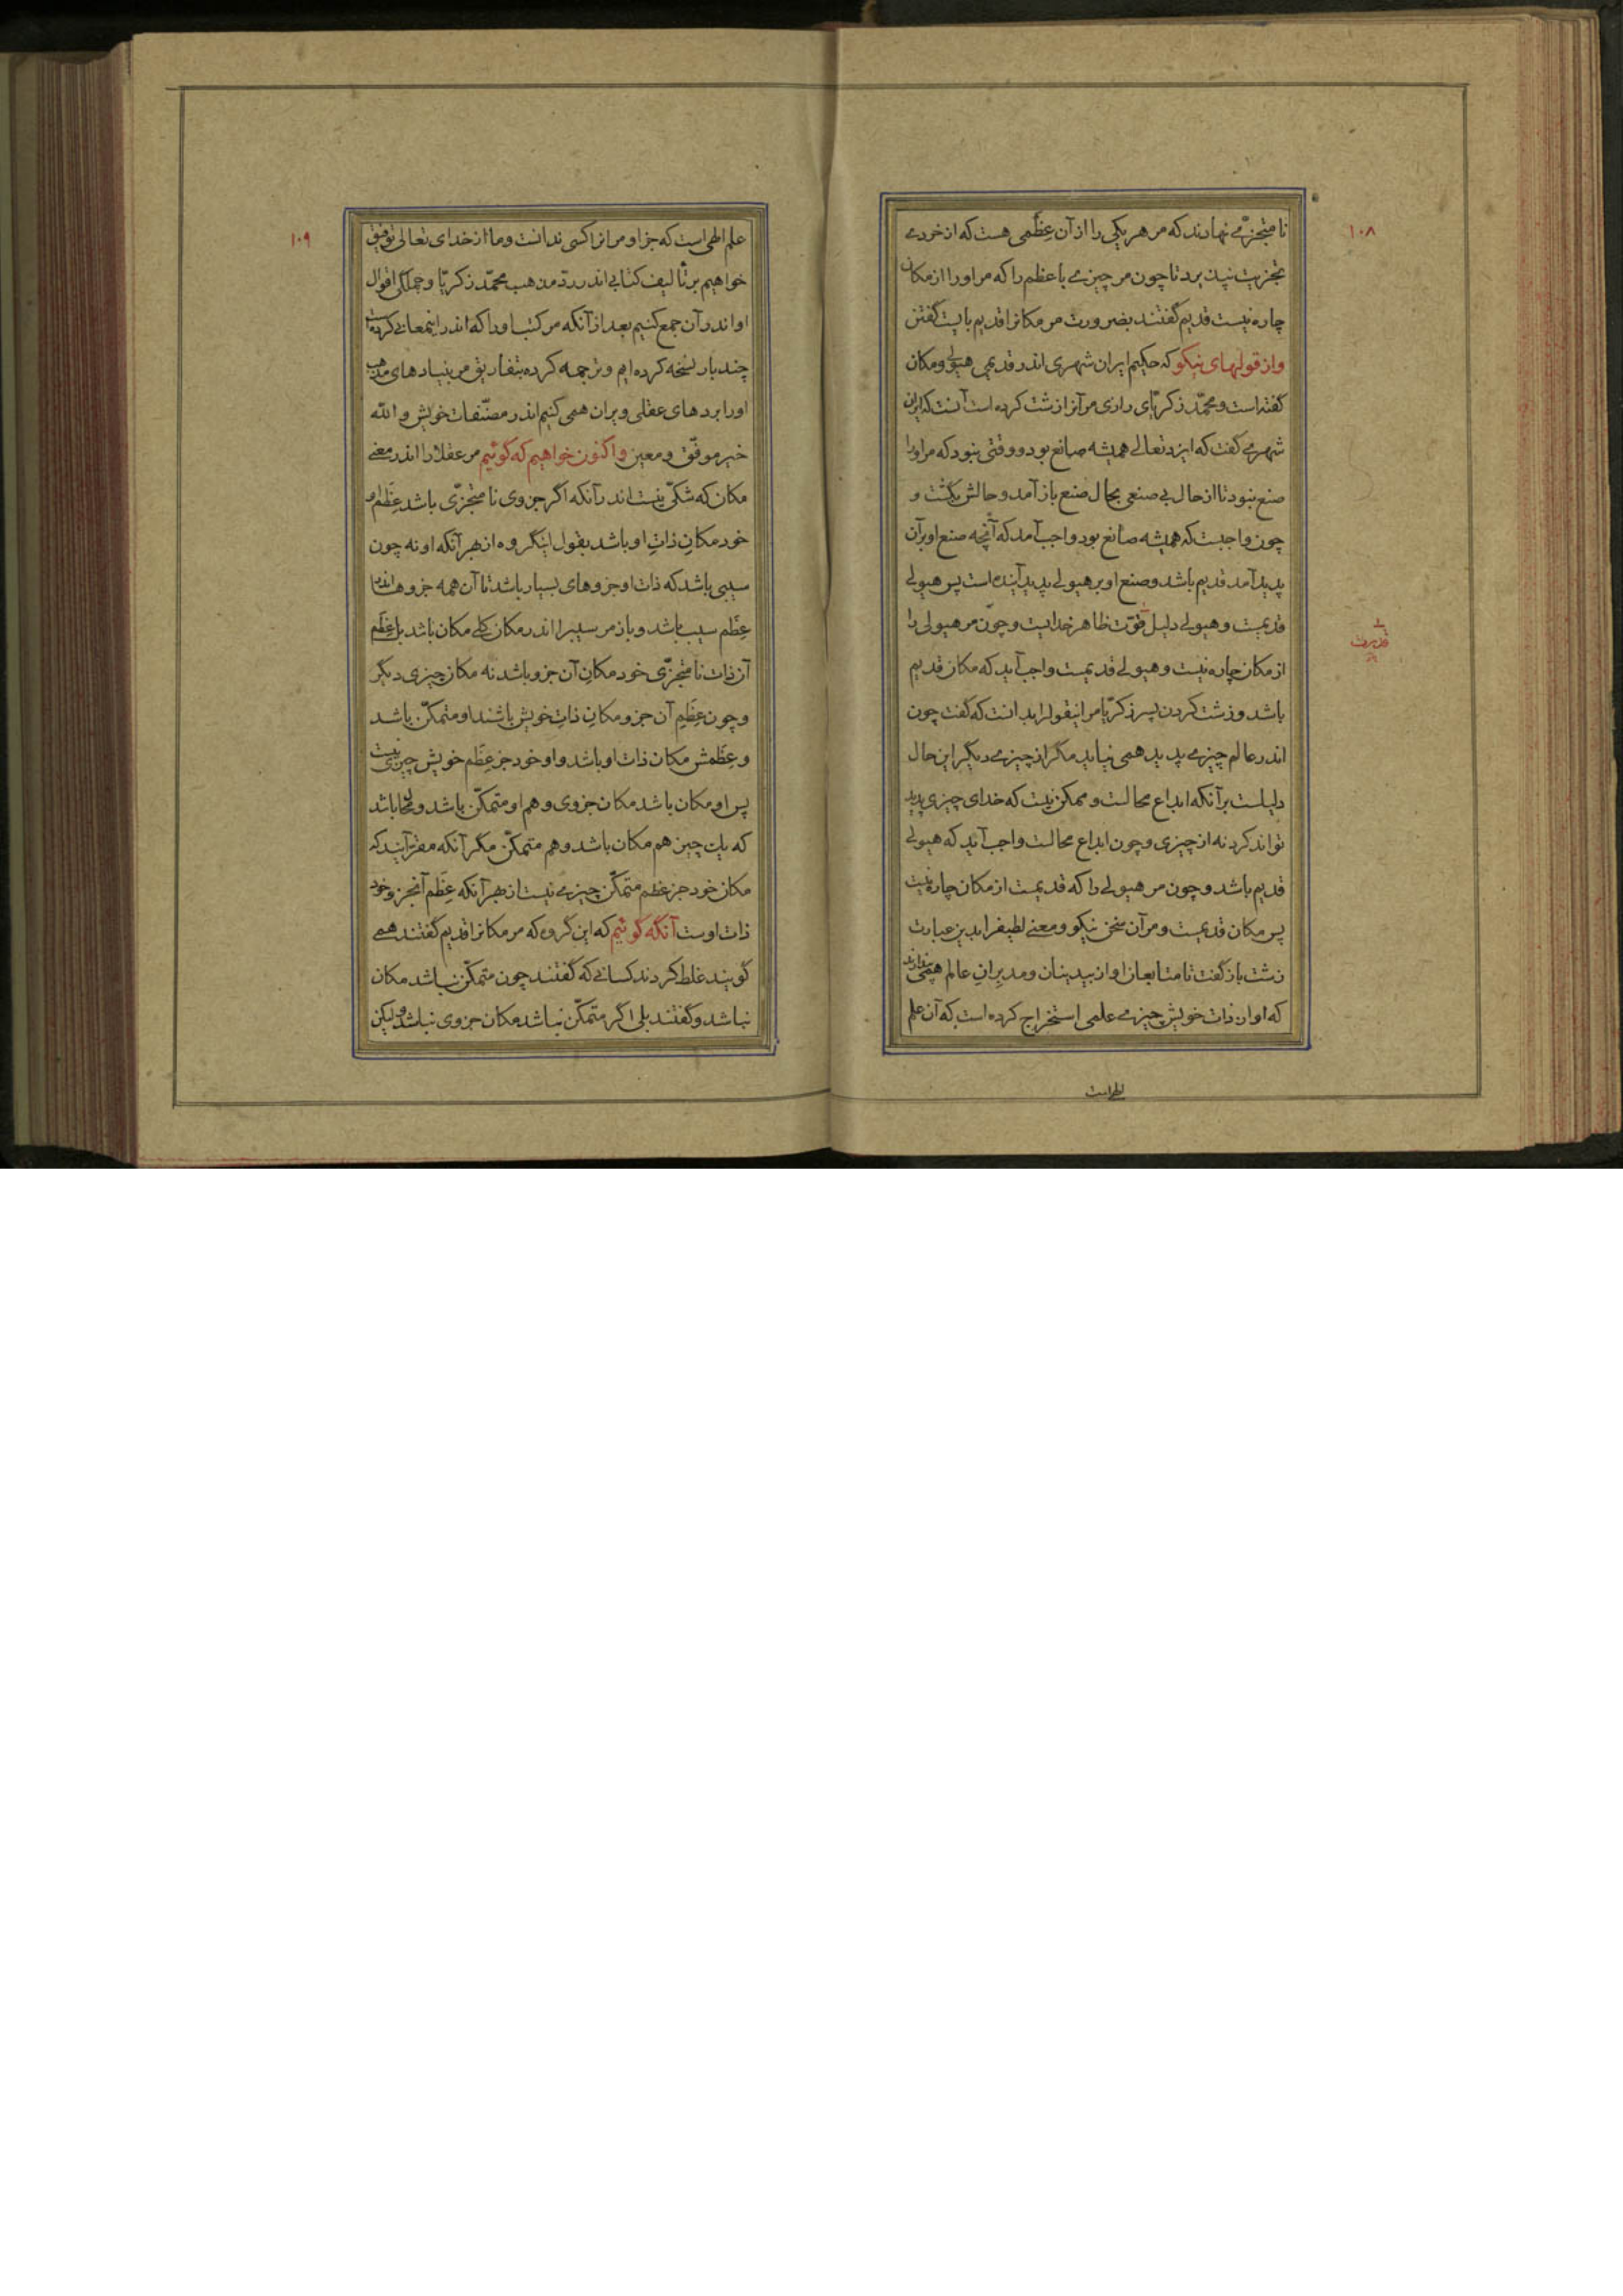 ۱۰۸
نا متجزّی نهادند که مر هر یکی را از آن عِظَمی هست که از خردی
تجزیت نپذیرد تا چون مر چیزی با عظم را که مر او را از مکان
چاره نیست قدیم گفتند بضرورت مر مکانرا قدیم بایست گفتن
و از قولهای نیکو که حکیم ایران شهری اندر قدیمی هیولی و مکان
گفته است و محمّد زکریّای رازی مر آنرا زشت کرده است آنست که ایران
شهری گفت که ایزد تعالی همیشه صانع بود و وقتی نبود که مر او را
صنع نبود تا از حال بی صنعی بحال صنع باز آمد و حالش بگشت و
چون واجبست که همیشه صانع بود واجب آمد که آنچه صنع او بر آن
پدید آمد قدیم باشد و صنع او بر هیولی پدید آینده است پس هیولی
قدیمست و هیولی دلیل قوّت ظاهر خدایست و چون مر هیولی را
قدرت
از مکان چاره نیست و هیولی قدیمست واجب آید که مکان قدیم
باشد و زشت کردن پسر زکریّا مر اینقولرا بدانست که گفت چون
اندر عالم چیزی پدید همی نیاید مگر از چیزی دیگر این حال
دلیلست بر آنکه ابداع محالست و ممکن نیست که خدای چیزی پدید
تواند کرد نه از چیزی و چون ابداع محالست واجب آید که هیولی
قدیم باشد و چون مر هیولی را که قدیمست از مکان چاره نیست
پس مکان قدیمست و مر آن سخن نیکو و معنی لطیفرا بدین عبارت
زشت باز گفت تا متابعان او از بیدینان و مدبران عالم همی پندارند
که او از ذات خویش چیزی علمی استخراج کرده است که آن علم
الهی است
۱۰۹
علم الهی است که جز او مر انرا کسی ندانست و ما از خدای تعالی توفیق
خواهیم بر تألیف کتابی اندر ردّ مذهب محمّد زکریّا و جملگی اقوال
او اندر آن جمع کنیم بعد از آنکه مر کتب او را که اندر اینمعانی کرده است
چند بار نسخه کرده ایم و ترجمه کرده بتفاریق مر بنیادهای مذهب
اورا بردهای عقلی ویران همی کنیم اندر مصنّفات خویش و الله
خیر موفّق و معین و اکنون خواهیم که گوئیم مر عقلا را اندر معنی
مکان که شکّی نیست اندر آنکه اگر جزوی نا متجزّی باشد عِظَم او
خود مکانِ ذاتِ او باشد بقول اینگروه از بهر آنکه او نه چون
سیبی باشد که ذات او جزوهای بسیار باشد تا آن همه جزوها اندر
عِظَم سیب باشد و باز مر سیبرا اندر مکان کلی مکان باشد بل عِظَم
آن ذات نا متجزّی خود مکانِ آن جزو باشد نه مکان چیزی دیگر
و چون عِظَمِ آن جزو مکانِ ذاتِ خویش باشند او متمکّن باشد
و عِظَمش مکان ذات او باشد و او خود جز عِظَم خویش چیزی نیست
پس او مکان باشد مکان جزوی و هم او متمکّن باشد و محال باشد
که یک چیز هم مکان باشد و هم متمکّن مگر آنکه مقرّ آیند که
مکان خود جز عظم متمکّن چیزی نیست از بهر آنکه عِظَم آنجزو خود
ذات اوست آنگه گوئیم که این گروه که مر مکانرا قدیم گفتند همی
گویند غلط کردند کسانی که گفتند چون متمکّن نباشد مکان
نباشد و گفتند بلی اگر متمکّن نباشد مکان جزوی نباشد ولیکن